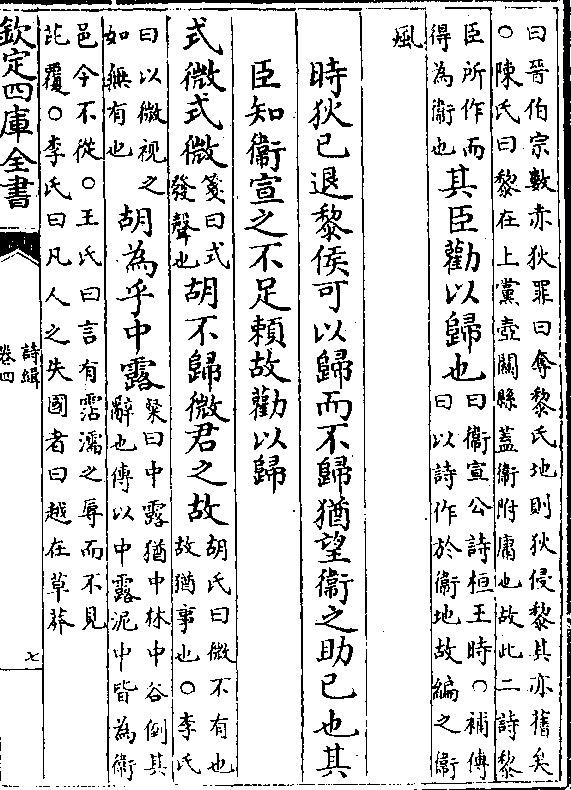 曰晉伯宗數赤狄罪曰奪黎氏地則狄侵黎其亦舊矣
○陳氏曰黎在上黨壺關縣蓋衞附庸也故此二詩黎
臣所作而
得為衞也
其臣勸以歸也
曰衞宣公詩桓王時○補傳
曰以詩作於衞地故編之衞
風
時狄已退黎侯可以歸而不歸猶望衞之助已也其
臣知衞宣之不足賴故勸以歸
式微式微
箋曰式
發聲也
胡不歸微君之故
胡氏曰微不有也
故猶事也○李氏
曰以微視之
如無有也
胡為乎中露
粲曰中露猶中林中谷倒其
辭也傳以中露泥中皆為衞
邑今不從○王氏曰言有霑濡之辱而不見
芘覆○李氏曰凡人之失國者曰越在草莽
欽定四庫全書
詩緝
卷四
七